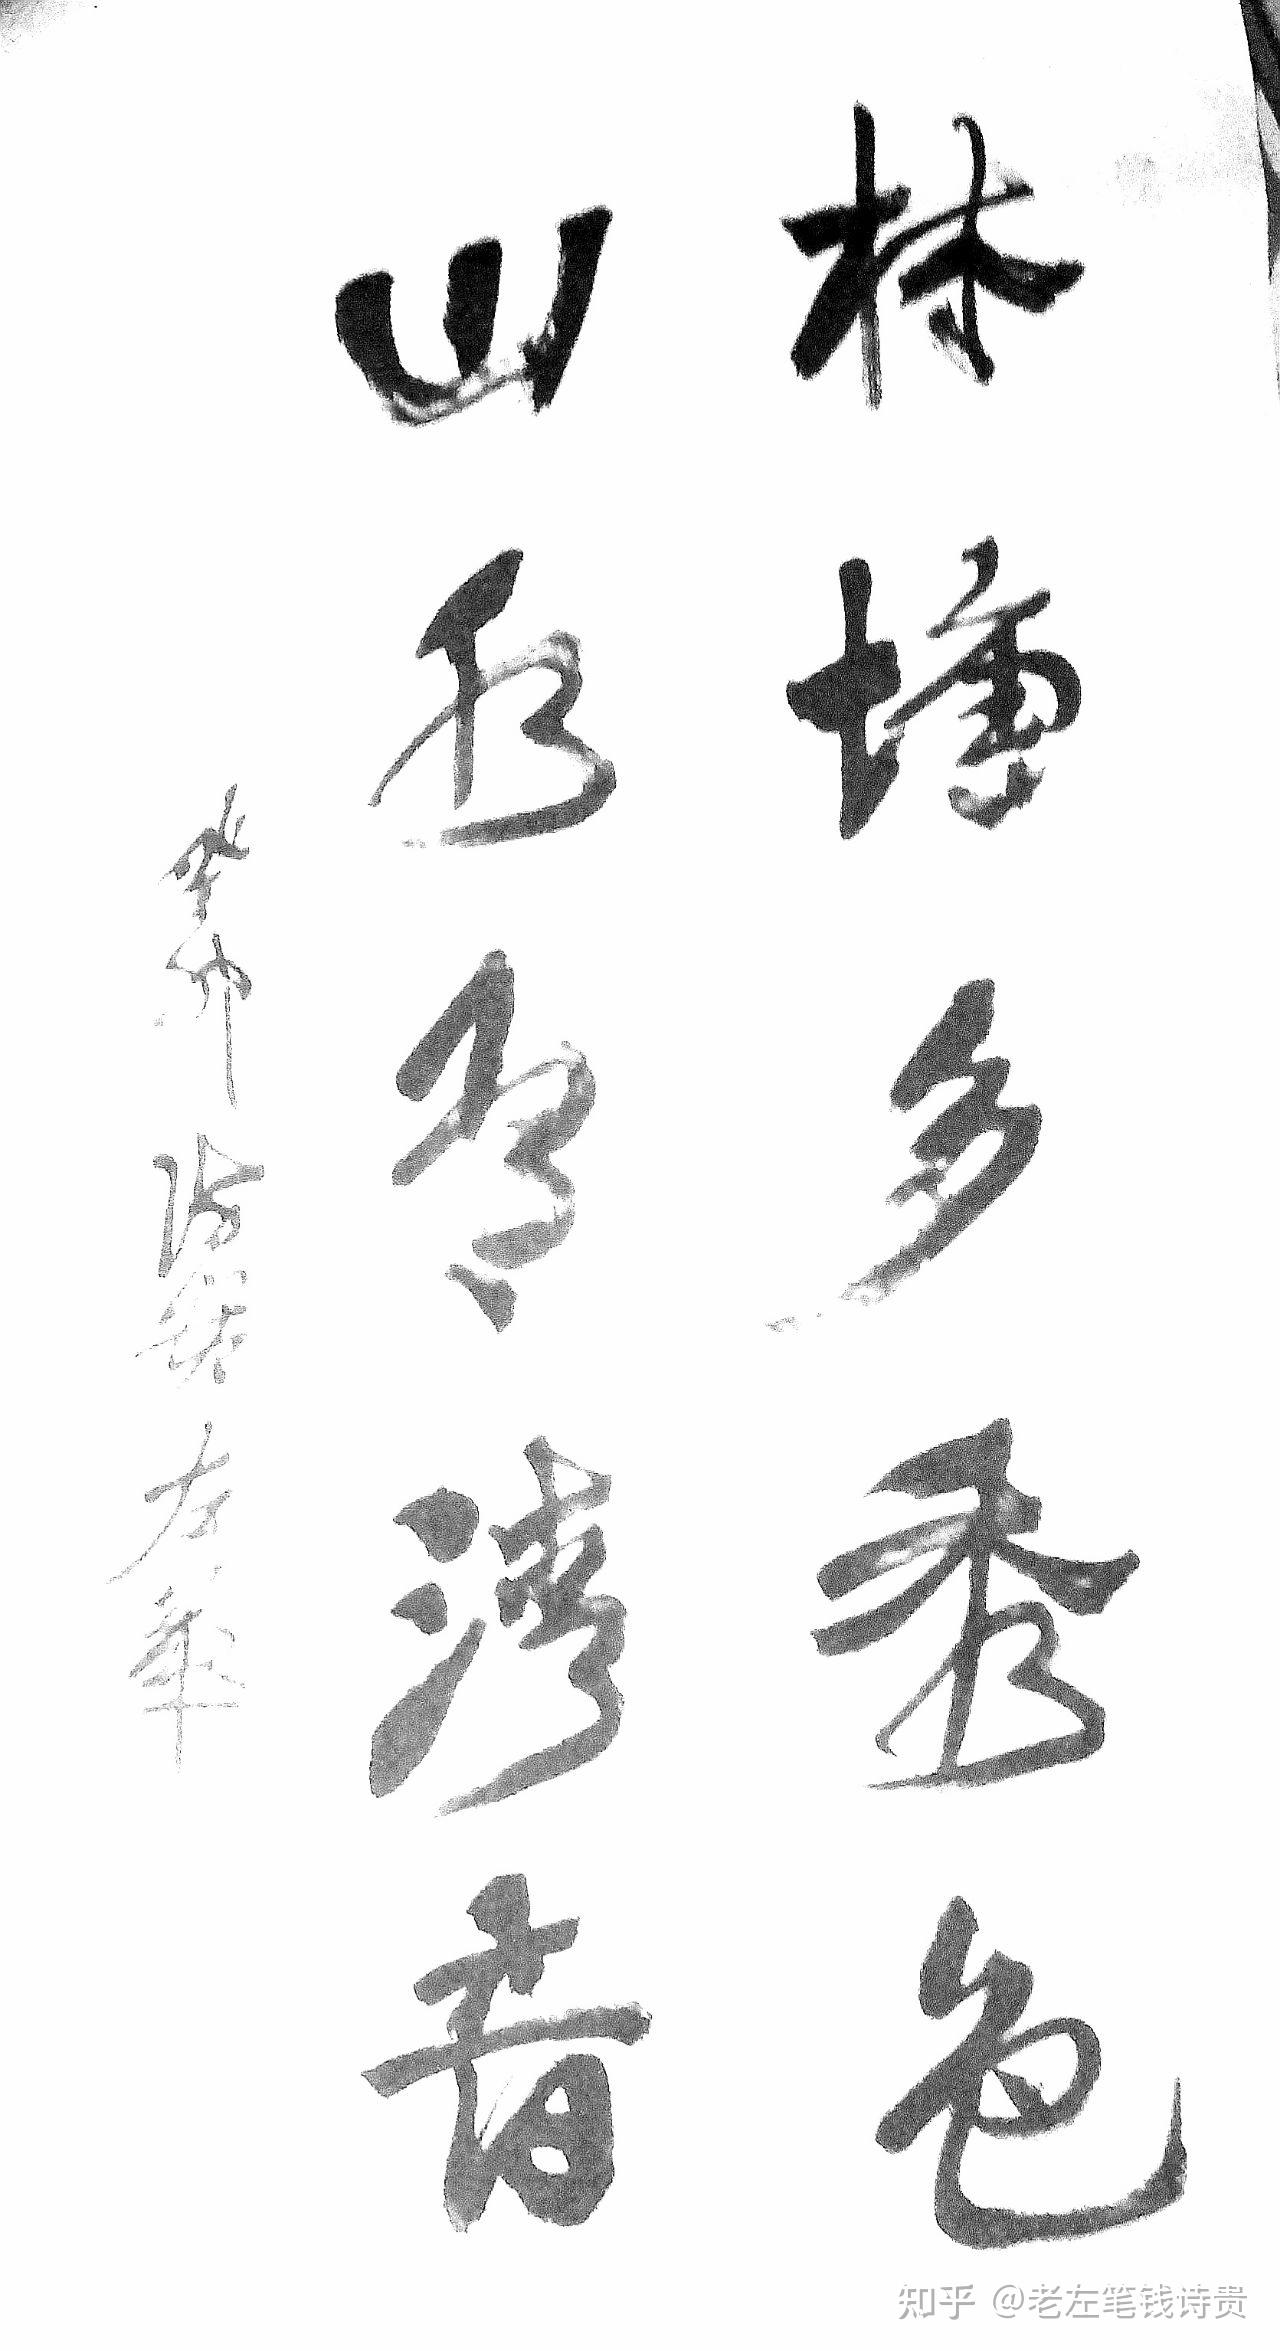 林塘多秀色
山水有清音
癸卯
左華
知乎 @老左笔钱诗贵